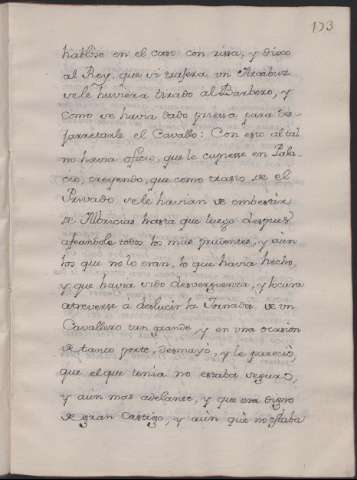 173
hablose en el caso con risa, y dixo
al Rey, que si traxera un Arcabuz
se le huviera tirado al Barbero, y
como se havia dado priesa para des-
jarretarle el Cavallo: Con esto al tal
no havia oficio, que le cupiesse en Pala-
cio, creyendo, que como trasto se el
Privado se le havian de embestir
de Albricias hasta que luego despues
afeandole todos los mas prudentes, y aùn
los que no lo eran, lo que havia hecho,
y que havia sido desverguenza, y locura
atreverse à deslucir la Jornada de un
Cavallero tan grande, y en una ocasion
de tanto porte, desmayò, y le pareciò,
que el que tenia no estaba seguro,
y aùn mas adelante, y que era digno
de gran Castigo, y aùn què no estaba